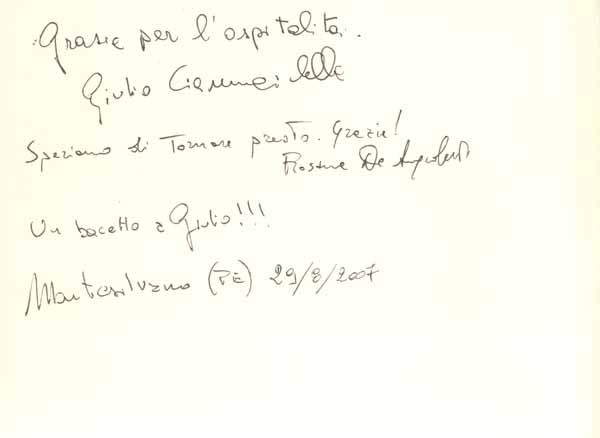 Grazie per l'ospitalità.
Giulio
Speriamo di Tornare presto. Grazie!
De
Un bacetto a Giulio!!!
Montesilvano (PE) 29/8/2007